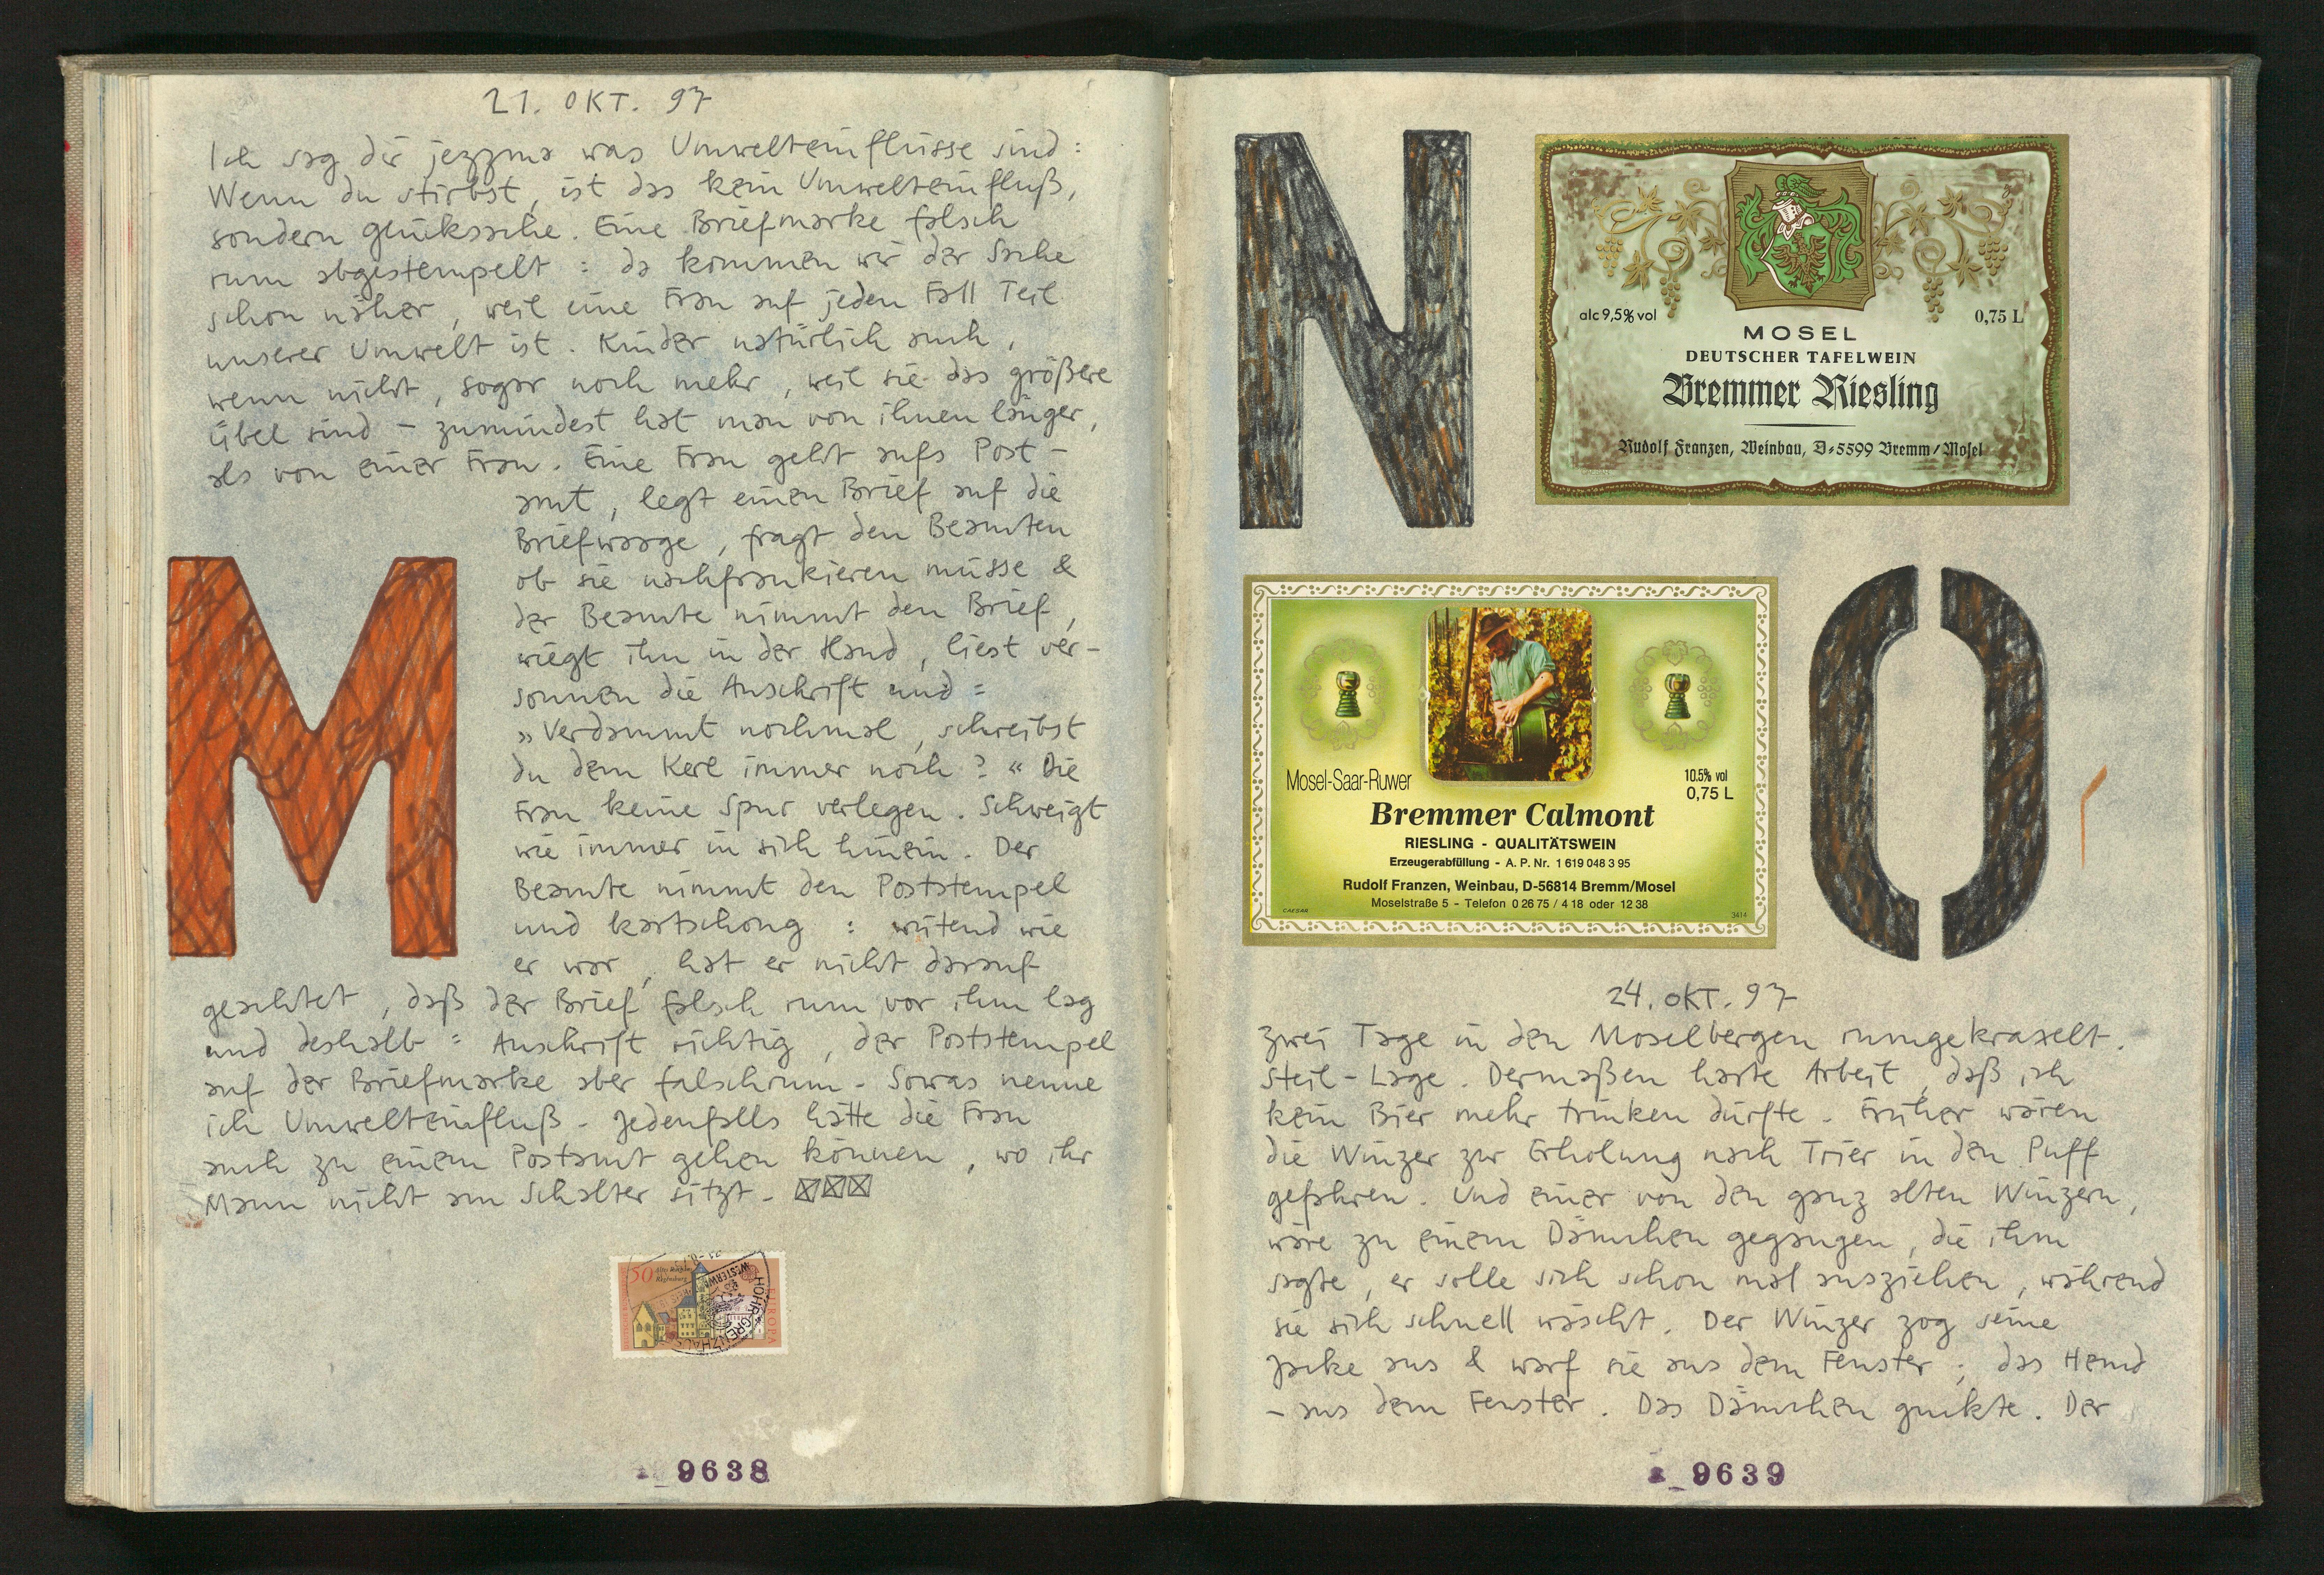 21. OKT. 97
Ich sag dir jezzma was Umwelteinflüsse sind:
Wenn du stirbst, ist das kein Umwelteinfluß,
sondern glückssache. Eine Briefmarke falsch
rum abgestempelt: da kommen wir der Sache
schon näher, weil eine Frau auf jeden Fall Teil
unserer Umwelt ist. Kinder natürlich auch,
wenn nicht, sogar noch mehr, weil sie das größere
Übel sind – zumindest hat man von ihnen länger,
als von einer Frau. Eine Frau geht aufs Post-
amt, legt einen Brief auf die
Briefwaage, fragt den Beamten
ob sie nachfrankieren müsse &
der Beamte nimmt den Brief,
wiegt ihn in der Hand, liest ver-
sonnen die Anschrift und:
»Verdammt nochmal, schreibst
du dem Kerl immer noch?« Die
Frau keine Spur verlegen. Schweigt
wie immer in sich hinein. Der
Beamte nimmt den Poststempel
und kartschong: wütend wie
er war, hat er nicht darauf
geachtet, daß der Brief falsch rum vor ihm lag
und deshalb: Anschrift richtig, der Poststempel
auf der Briefmarke aber falschrum. Sowas nenne
ich Umwelteinfluß. Jedenfalls hätte die Frau
auch zu einem Postamt gehen können, wo ihr
Mann nicht am Schalter sitzt.
M
50
EUROPA
WESTERWA
HÖHR-GRENZHAUS
9638
N
alc 9,5% vol
0,75 L
MOSEL
DEUTSCHER TAFELWEIN
Bremmer Riesling
Rudolf Franzen, Weinbau, D-5599 Bremm/Mosel
Mosel-Saar-Ruwer
10.5% vol
0,75 L
Bremmer Calmont
RIESLING - QUALITÄTSWEIN
Erzeugerabfüllung - A. P. Nr. 1 619 048 3 95
Rudolf Franzen, Weinbau, D-56814 Bremm/Mosel
Moselstraße 5 - Telefon 0 26 75 / 4 18 oder 12 38
CAESAR
3414
O
24. OKT. 97
Zwei Tage in den Moselbergen rumgekraxelt.
Steil-Lage. Dermaßen harte Arbeit, daß ich
kein Bier mehr trinken dürfte. Früher wären
die Winzer zur Erholung nach Trier in den Puff
gefahren. Und einer von den ganz alten Winzern,
wäre zu einem Dämchen gegangen, die ihm
sagte, er solle sich schon mal ausziehen, während
sie sich schnell wäscht. Der Winzer zog seine
Jacke aus & warf sie aus dem Fenster; das Hemd
– aus dem Fenster. Das Dämchen guckte. Der
9639